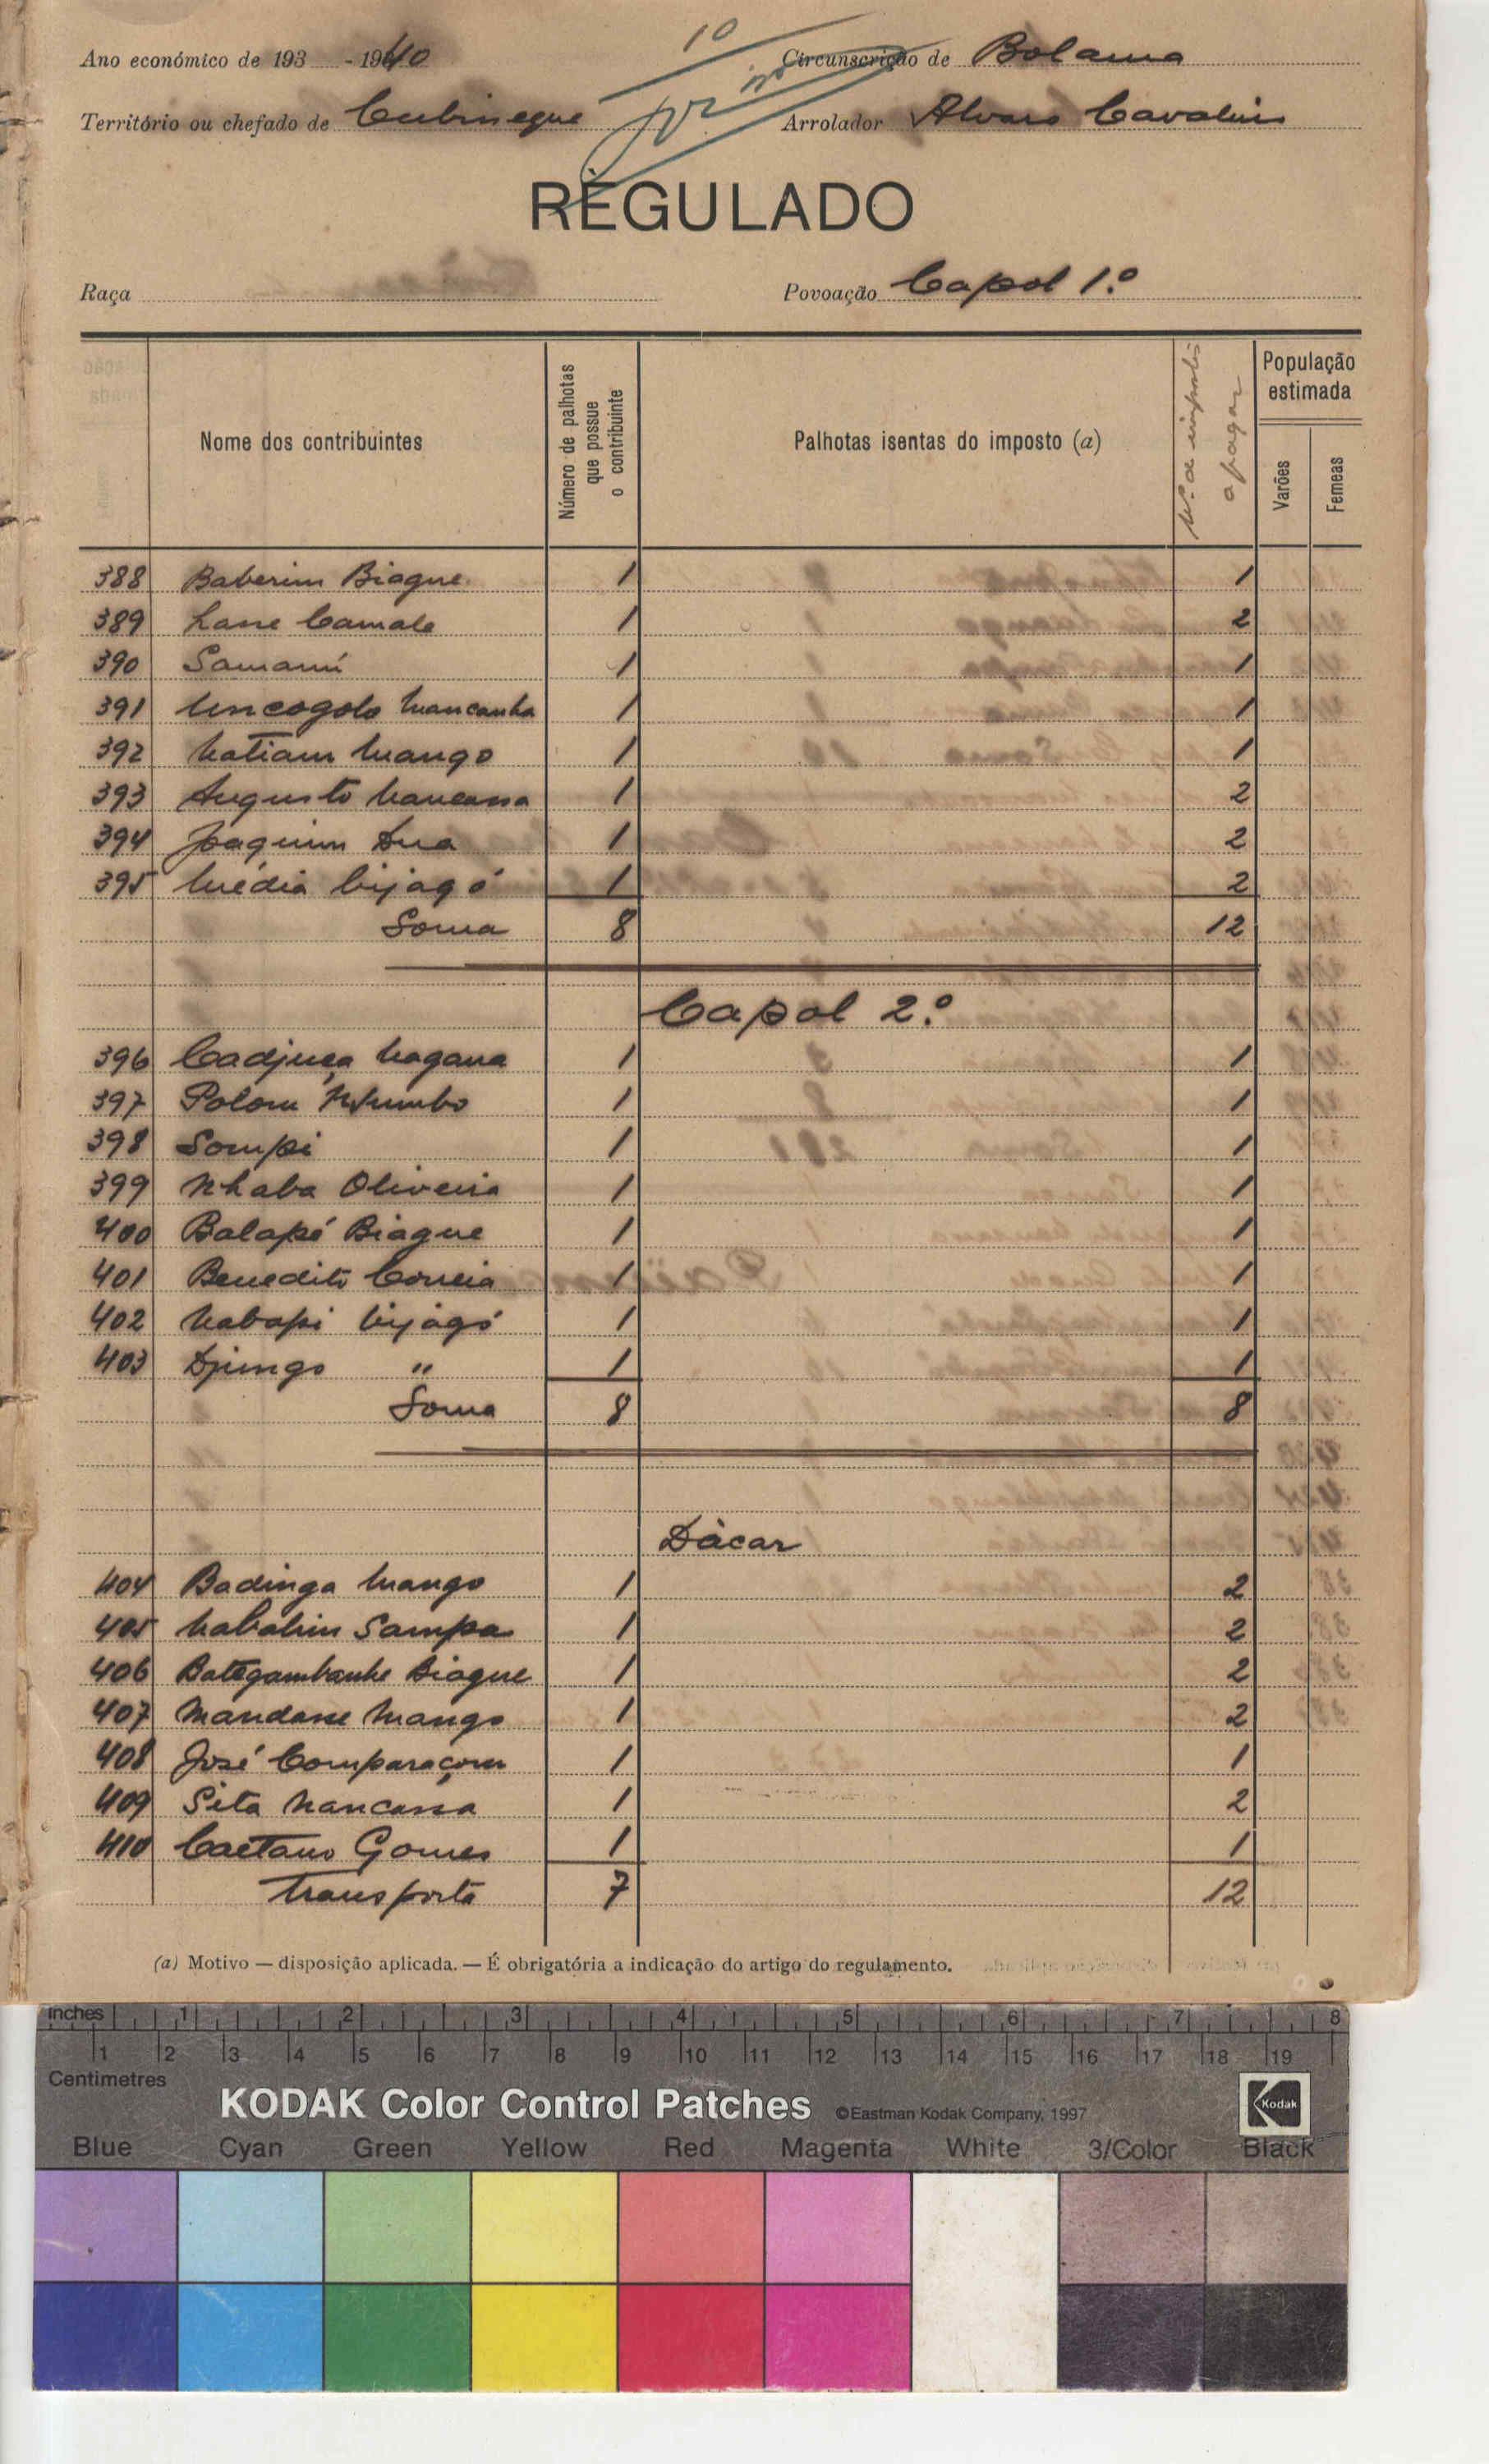 10
Ano económico de 193 - 1940 Circunscrição de Bolama
Território ou chefado de Cubinegue Arrolador Alvaro Cavaleiro
REGULADO
Raça Povoação Capol 1.º
Nome dos contribuintes
Número de palhotas que possue o contribuinte
Palhotas isentas do imposto (a)
N.º de impostos a pagar
População estimada
Varões
Femeas
388 Baberim Biague 1 1
389 Lane Camale 1 2
390 Samamí 1 1
391 Uncogolo Mancanha 1 1
392 Natiam Mango 1 1
393 Augusto Nancassa 1 2
394 Joaquim Dua 1 2
395 Média bijagó 1 2
Soma 8 12
Capol 2.º
396 Cadjuça Nagana 1 1
397 Polom 1 1
398 Sompi 1 1
399 Nhaba Oliveira 1 1
400 Balapó Biague 1 1
401 Benedito Correia 1 1
402 Nabapi bijagó 1 1
403 Djimgo " 1 1
Soma 8 8
Dàcar
404 Badinga Mango 1 2
405 Nabalim Sampa 1 2
406 Bategambanhe Biague 1 2
407 Mandasse Mango 1 2
408 José Comparaçom 1 1
409 Sita Nancassa 1 2
410 Caetano Gomes 1 1
Transporte 7 12
(a) Motivo — disposição aplicada. — É obrigatória a indicação do artigo do regulamento.
inches 1 2 3 4 5 6 7 8
1 2 3 4 5 6 7 8 9 10 11 12 13 14 15 16 17 18 19
Centimetres
KODAK Color Control Patches ©Eastman Kodak Company, 1997 Kodak
Blue Cyan Green Yellow Red Magenta White 3/Color Black